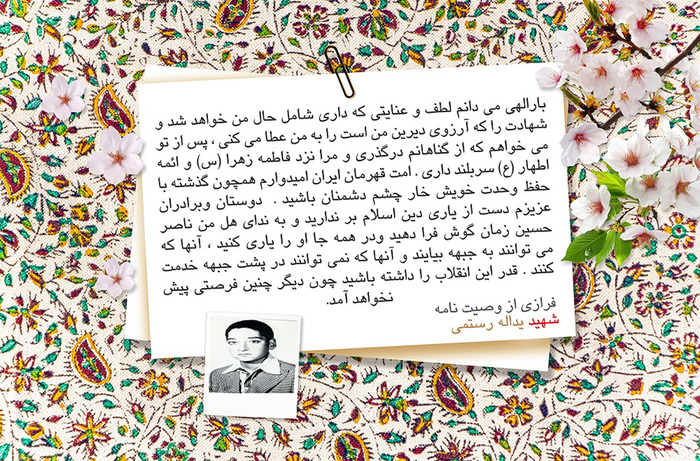 بارالهی می دانم لطف و عنایتی که داری شامل حال من خواهد شد و
شهادت را که آرزوی دیرین من است را به من عطا می کنی ، پس از تو
می خواهم که از گناهانم درگذری و مرا نزد فاطمه زهرا (س) و ائمه
اطهار (ع) سربلند داری . امت قهرمان ایران امیدوارم همچون گذشته با
حفظ وحدت خویش خار چشم دشمنان باشید . دوستان وبرادران
عزیزم دست از یاری دین اسلام بر ندارید و به ندای هل من ناصر
حسین زمان گوش فرا دهید ودر همه جا او را یاری کنید ، آنها که
می توانند به جبهه بیایند و آنها که نمی توانند در پشت جبهه خدمت
کنند . قدر این انقلاب را داشته باشید چون دیگر چنین فرصتی پیش
نخواهد آمد.
فرازی از وصیت نامه
شهید یداله رستمی